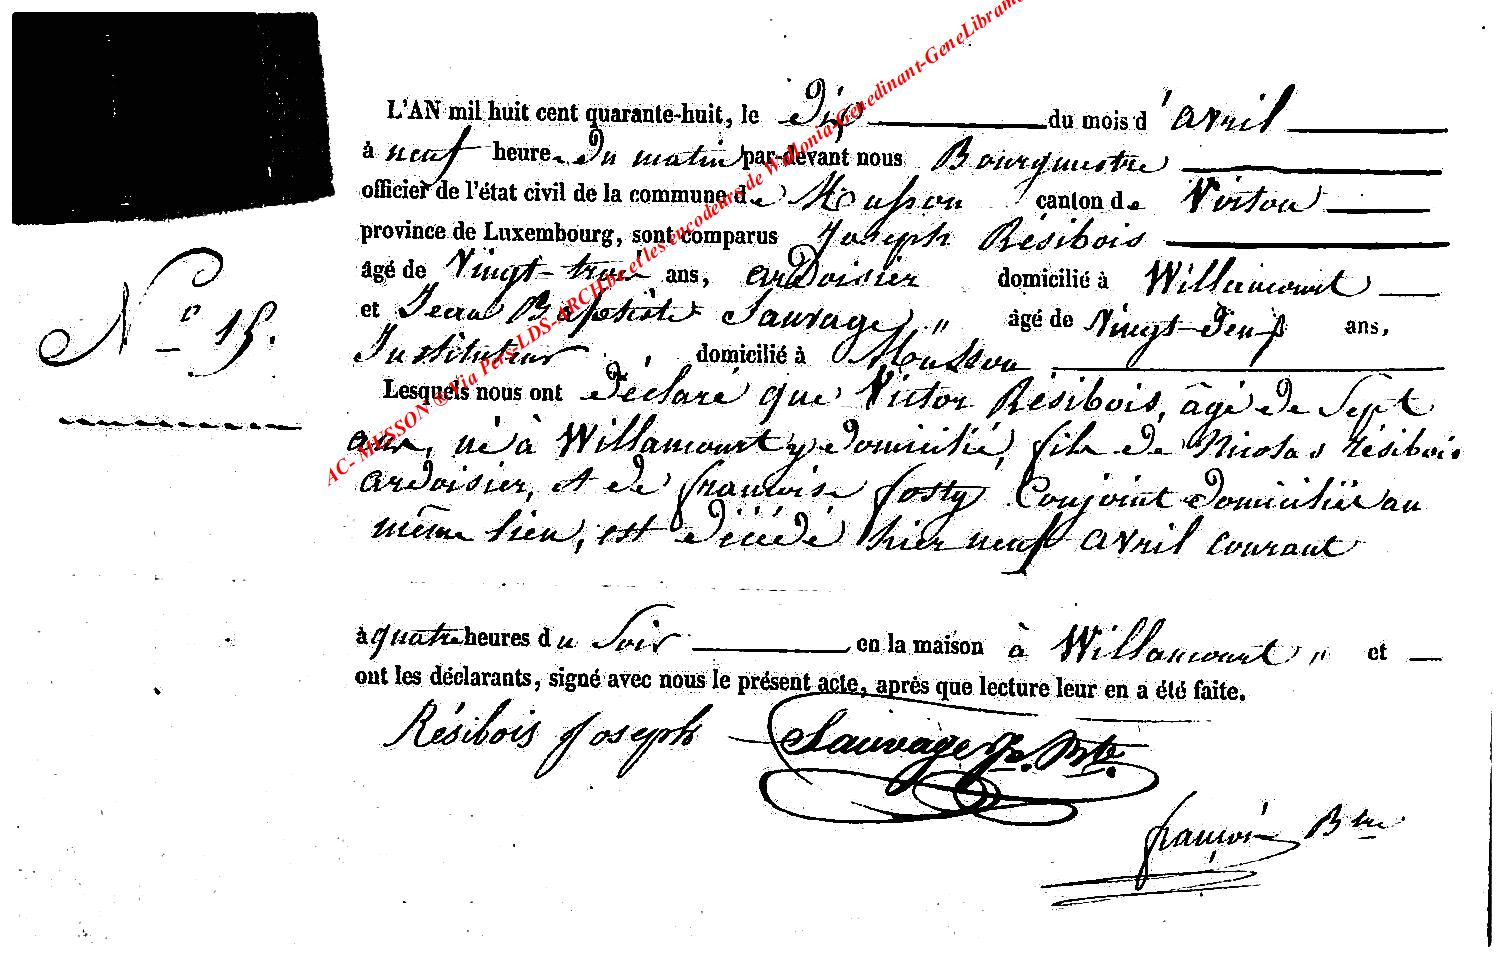 L'AN mil huit cent quarante-huit, le Dix du mois d'avril
à neuf heure du matin par-devant nous Bourgmestre
officier de l'état civil de la commune de Musson canton de Virton
province de Luxembourg, sont comparus Joseph Résibois
âgé de Vingt-trois ans, ardoisier domicilié à Willancourt
et Jean Baptiste Sauvage " âgé de Vingt-Deux ans,
N° 15.
Instituteur, domicilié à Musson
Lesquels nous ont déclaré que Victor Résibois, âgé de Sept
ans, né à Willancourt y domicilié, fils de Nicolas Résibois
ardoisier, et de françoise fosty Conjoint domiciliés au
même lieu, est décédé hier neuf avril courant
à quatre heures du Soir en la maison à Willancourt " et
ont les déclarants, signé avec nous le présent acte, après que lecture leur en a été faite.
Résibois Joseph Sauvage J. Bte.
françois Bme
AC- MUSSON ® Via Pets-LDS-ARCH.be et les encodeurs de Wallonia-Genedinant-GeneLibrame